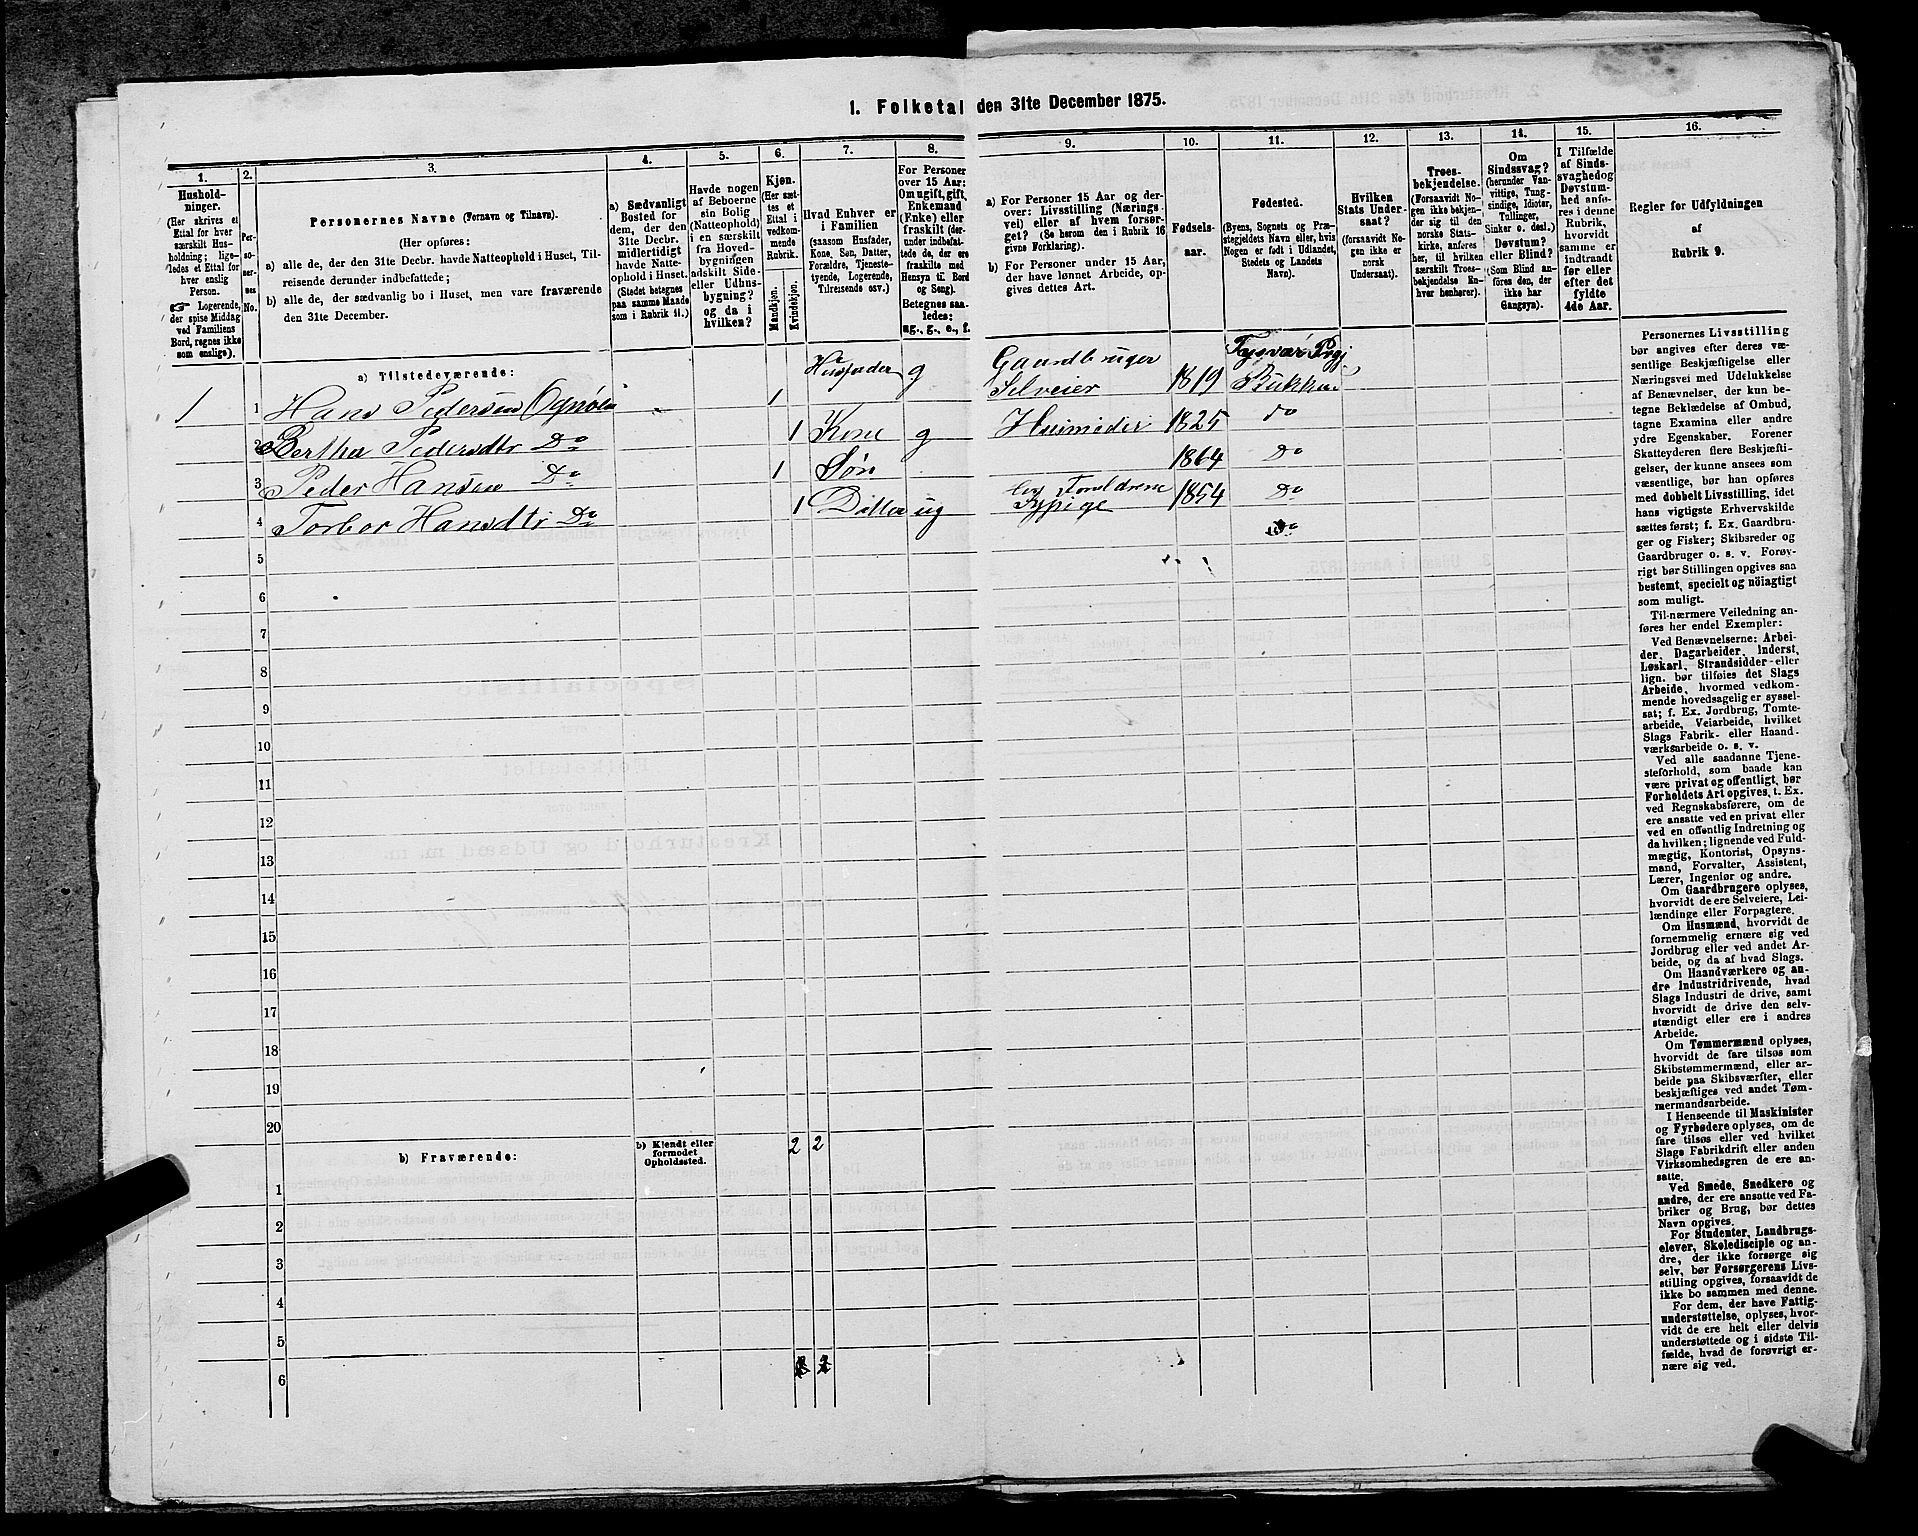 1. Folketal den 31te December 1875.
1.
2.
3.
4.
5.
6.
7.
8.
9.
10.
11.
12.
13.
14.
15.
16.
Hushold-
ninger.
(Her skrives et
Ettal for hver
særskilt Hus-
holdning; lige-
ledes et Ettal for
hver enslig
Person.
☞ Logerende,
der spise Middag
ved Familiens
Bord, regnes ikke
som enslige).
Per-
so-
ner-
nes
No.
Personernes Navne (Fornavn og Tilnavn).
(Her opføres:
a) alle de, der den 31te Decbr. havde Natteophold i Huset, Til-
reisende derunder indbefattede;
b) alle de, der sædvanlig bo i Huset, men vare fraværende
den 31te December.
a) Sædvanligt
Bosted for
dem, der den
31te Decbr.
midlertidigt
havde Natte-
ophold i Huset.
(Stedet betegnes
paa samme Maade
som i Rubrik 11.)
Havde nogen
af Beboerne
sin Bolig
(Natteophold)
i en særskilt
fra Hoved-
bygningen
adskilt Side-
eller Udhus-
bygning?
og da i
hvilken?
Kjøn.
(Her sæt-
tes et
Ettal i
vedkom-
mende
Rubrik.
Mandkjøn.
Kvindekjøn.
Hvad Enhver er
i Familien
(saasom Husfader,
Kone, Søn, Datter,
Forældre, Tjeneste-
tyende, Logerende,
Tilreisende osv.)
For Personer
over 15 Aar:
Om ugift, gift,
Enkemand
(Enke) eller
fraskilt (der-
under indbefat-
tede de, der ere
fraskilte med
Hensyn til Bord
og Seng).
Betegnes saa-
ledes:
ug., g., e., f.
a) For Personer 15 Aar og der-
over: Livsstilling (Nærings-
vei) eller af hvem forsør-
get? (Se herom den i Rubrik 16
givne Forklaring).
b) For Personer under 15 Aar,
der have lønnet Arbeide, op-
gives dettes Art.
Fødsels-
aar.
Fødested.
(Byens, Sognets og Præ-
stegjeldets Navn eller, hvis
Nogen er født i Udlandet,
Stedets og Landets
Navn).
Hvilken
Stats Under-
saat?
(forsaavidt No-
gen ikke er
norsk
Undersaat).
Troes-
bekjendelse.
(Forsaavidt No-
gen ikke bekjen-
der sig til den
norske Stats-
kirke, anføres
her, til hvilken
særskilt Troes-
bekjendelse En-
hver henhører).
Om
Sindssvag?
(herunder Van-
vittige, Tung-
sindige, Idioter,
Tullinger,
Sinker o. desl.).
Døvstum?
eller Blind?
(Som Blind an-
føres den, der
ikke har
Gangsyn).
I Tilfælde
af Sinds-
svaghed og
Døvstum-
hed anfø-
res i denne
Rubrik,
hvorvidt
samme er
indtraadt
før eller
efter det
fyldte
4de Aar.
Regler for Udfyldningen
af
Rubrik 9.
a) Tilstedeværende:
1 1 Hans Pedersen Ognøen 1 Husfader g Gaardbruger Selveier 1819 Tysvær Prgj Bukken
2 Bertha Pedersdtr Do 1 Kone g Husmoder 1825 do
3 Peder Hansen Do 1 Søn 1864 Do
4 Torbor Hansdtr Do 1 Datter ug Hos Forældrene Sypige 1854 Do
Do
5
6
7
8
9
10
11
12
13
14
15
16
17
18
19
20
b) Fraværende:
b) Kjendt eller
formodet
Opholdssted.
2 2
1
2
3
4
5
6
Personernes Livsstilling
bør angives efter deres væ-
sentlige Beskjæftigelse eller
Næringsvei med Udelukkelse
af Benævnelser, der kun be-
tegne Beklædelse af Ombud,
tagne Examina eller andre
ydre Egenskaber. Forener
Skatteyderen flere Beskjæfti-
gelser, der kunne ansees som
væsentlige, bør han opføres
med dobbelt Livsstilling, idet
hans vigtigste Erhvervskilde
sættes først; f. Ex. Gaardbru-
ger og Fisker; Skibsreder og
Gaardbruger o. s. v. Forøv-
rigt bør Stillingen opgives saa
bestemt, specielt og nöiagtigt
som muligt.
Til nærmere Veiledning an-
føres her endel Exempler:
Ved Benævnelserne: Arbei-
der, Dagarbeider, Inderst,
Løskarl, Strandsidder eller
lign. bør tilføies det Slags
Arbeide, hvormed vedkom-
mende hovedsagelig er syssel-
sat; f. Ex. Jordbrug, Tomte-
arbeide, Veiarbeide, hvilket
Slags Fabrik- eller Haand-
værksarbeide o. s. v.
Ved alle saadanne Tjene-
steforhold, som baade kan
være privat og offentligt, bør
Forholdets Art opgives, t. Ex.
ved Regnskabsførere, om de
ere ansatte ved en privat eller
ved en offentlig Indretning og
da hvilken; lignende ved Fuld-
mægtig, Kontorist, Opsyns-
mand, Forvalter, Assistent,
Lærer, Ingeniør og andre.
Om Gaardbrugere oplyses,
hvorvidt de ere Selveiere, Lei-
lændinge eller Forpagtere.
Om Husmænd, hvorvidt de
fornemmelig ernære sig ved
Jordbrug eller ved andet Ar-
beide, og da af hvad Slags.
Om Haandværkere og an-
dre Industridrivende, hvad
Slags Industri de drive, samt
hvorvidt de drive den selv-
stændigt eller ere i andres
Arbeide.
Om Tømmermænd oplyses,
hvorvidt de fare tilsøs som
Skibstømmermænd, eller ar-
beide paa Skibsværfter, eller
beskjæftiges ved andet Tøm-
mermandsarbeide.
I Henseende til Maskinister
og Fyrbødere oplyses, om de
fare tilsøs eller ved hvilket
Slags Fabrikdrift eller anden
Virksomhedsgren de ere an-
satte.
Ved Smede, Snedkere og
andre, der ere ansatte ved Fa-
briker og Brug, bør dettes
Navn opgives.
For Studenter, Landbrugs-
elever, Skoledisciple og an-
dre, der ikke forsørge sig
selv, bør Forsørgerens Livs-
stilling opgives, forsaavidt de
ikke bo sammen med denne.
For dem, der have Fattig-
understøttelse, oplyses, hvor-
vidt de ere helt eller delvis
understøttede og i sidste Til-
fælde, hvad de forøvrigt er-
nære sig ved.